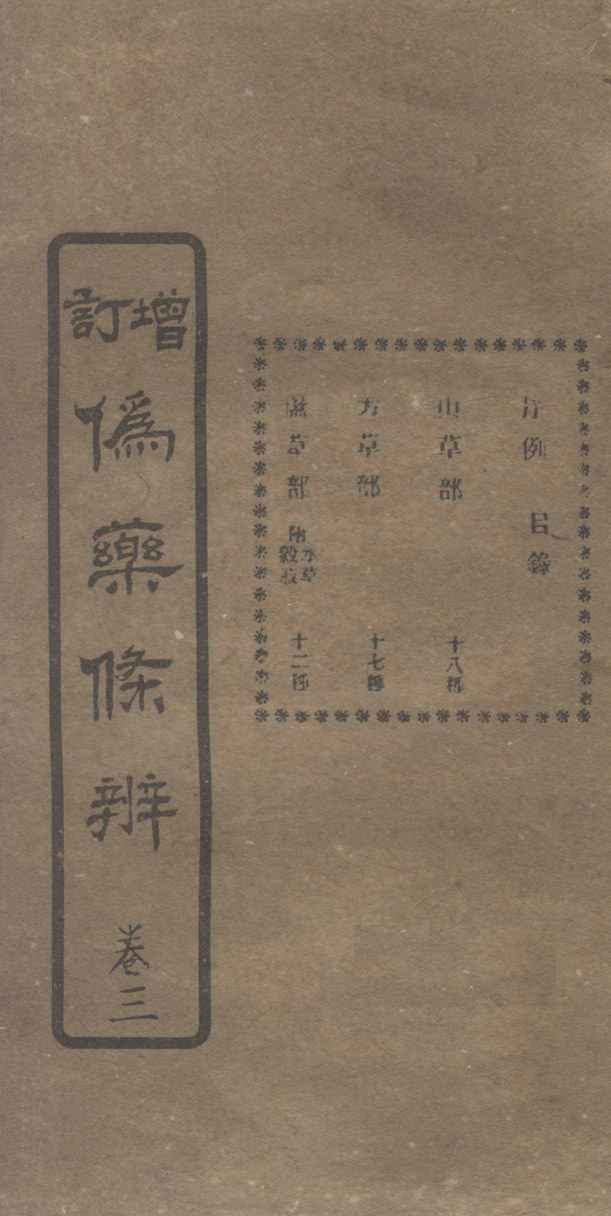 例 目錄
山草部 十八種
芳草部 十七種
草部 附 水草 穀菽 十二種
增訂
偽藥條辨
卷三